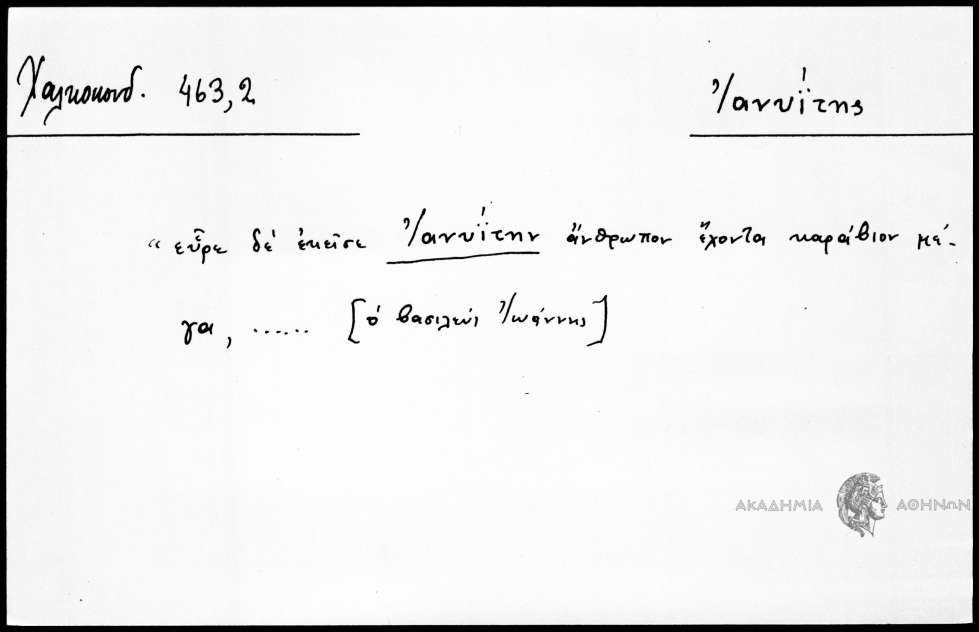 Χαλκοκονδ. 463,2
Ἰανυΐτης
“ εὗρε δέ ἐκεῖσε Ἰανυΐτην ἄνθρωπον ἔχοντα καράβιον μέ-
γα, ...... [ὁ βασιλεύς Ἰωάννης]
ΑΚΑΔΗΜΙΑ ΑΘΗΝΩΝ